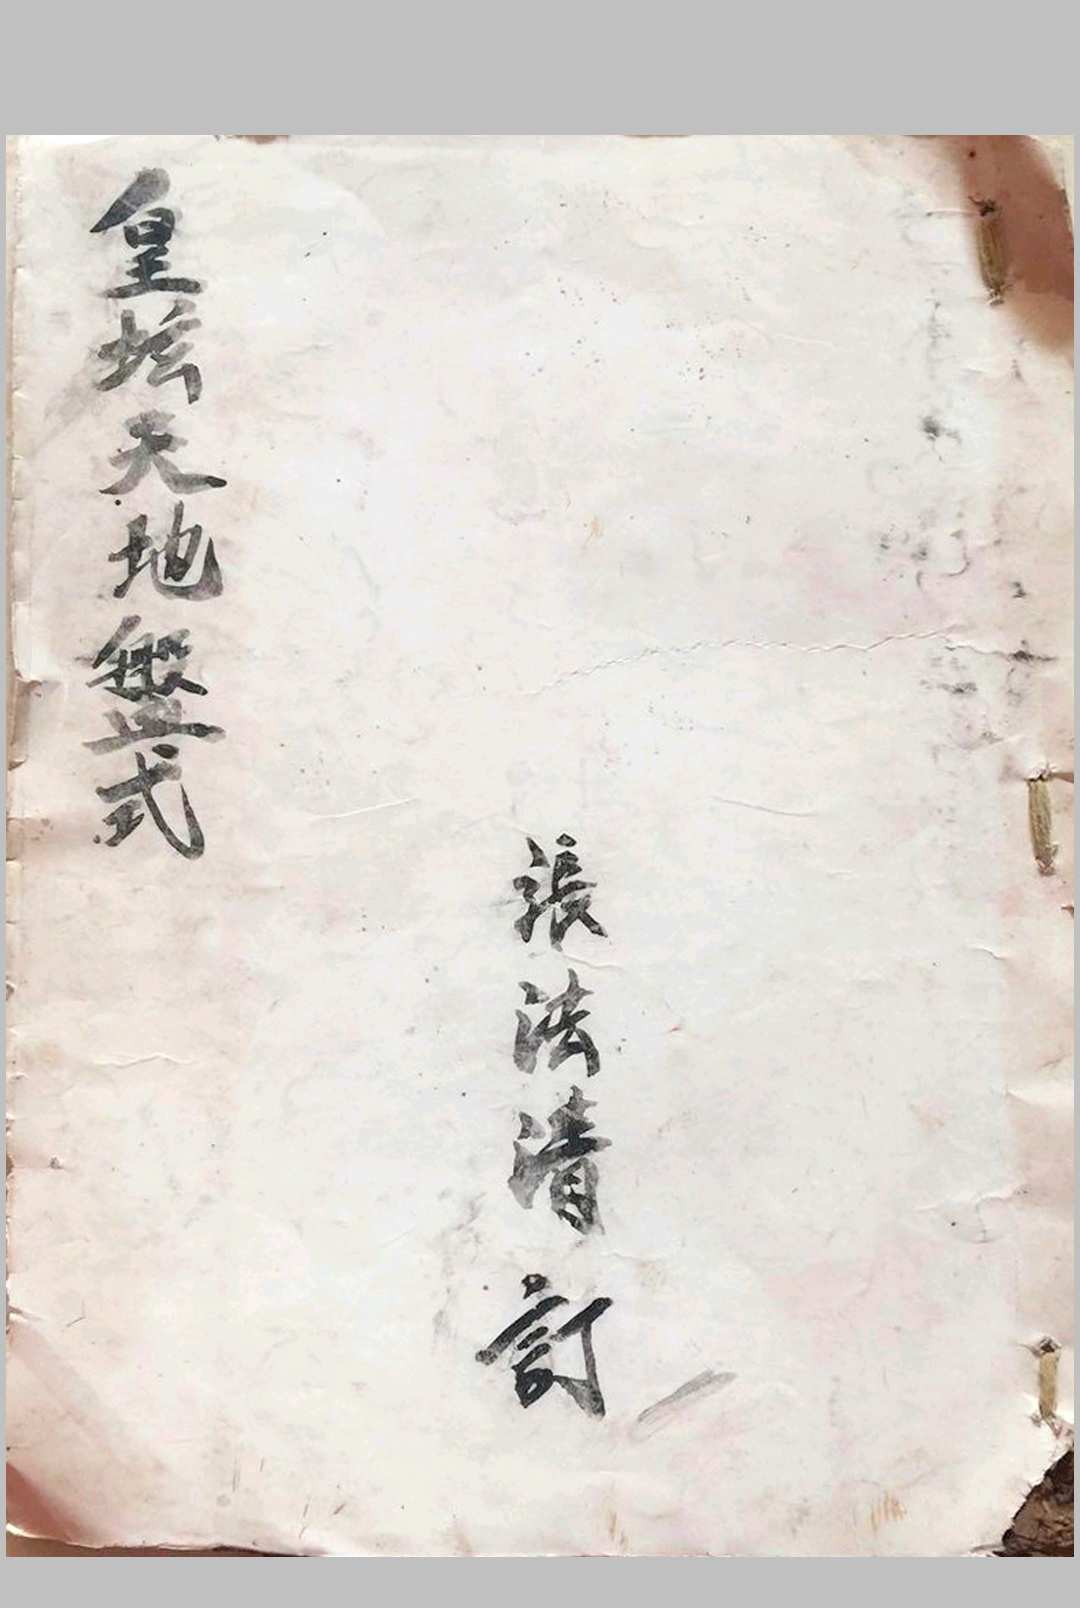 皇坛天地盤式
張法清訂